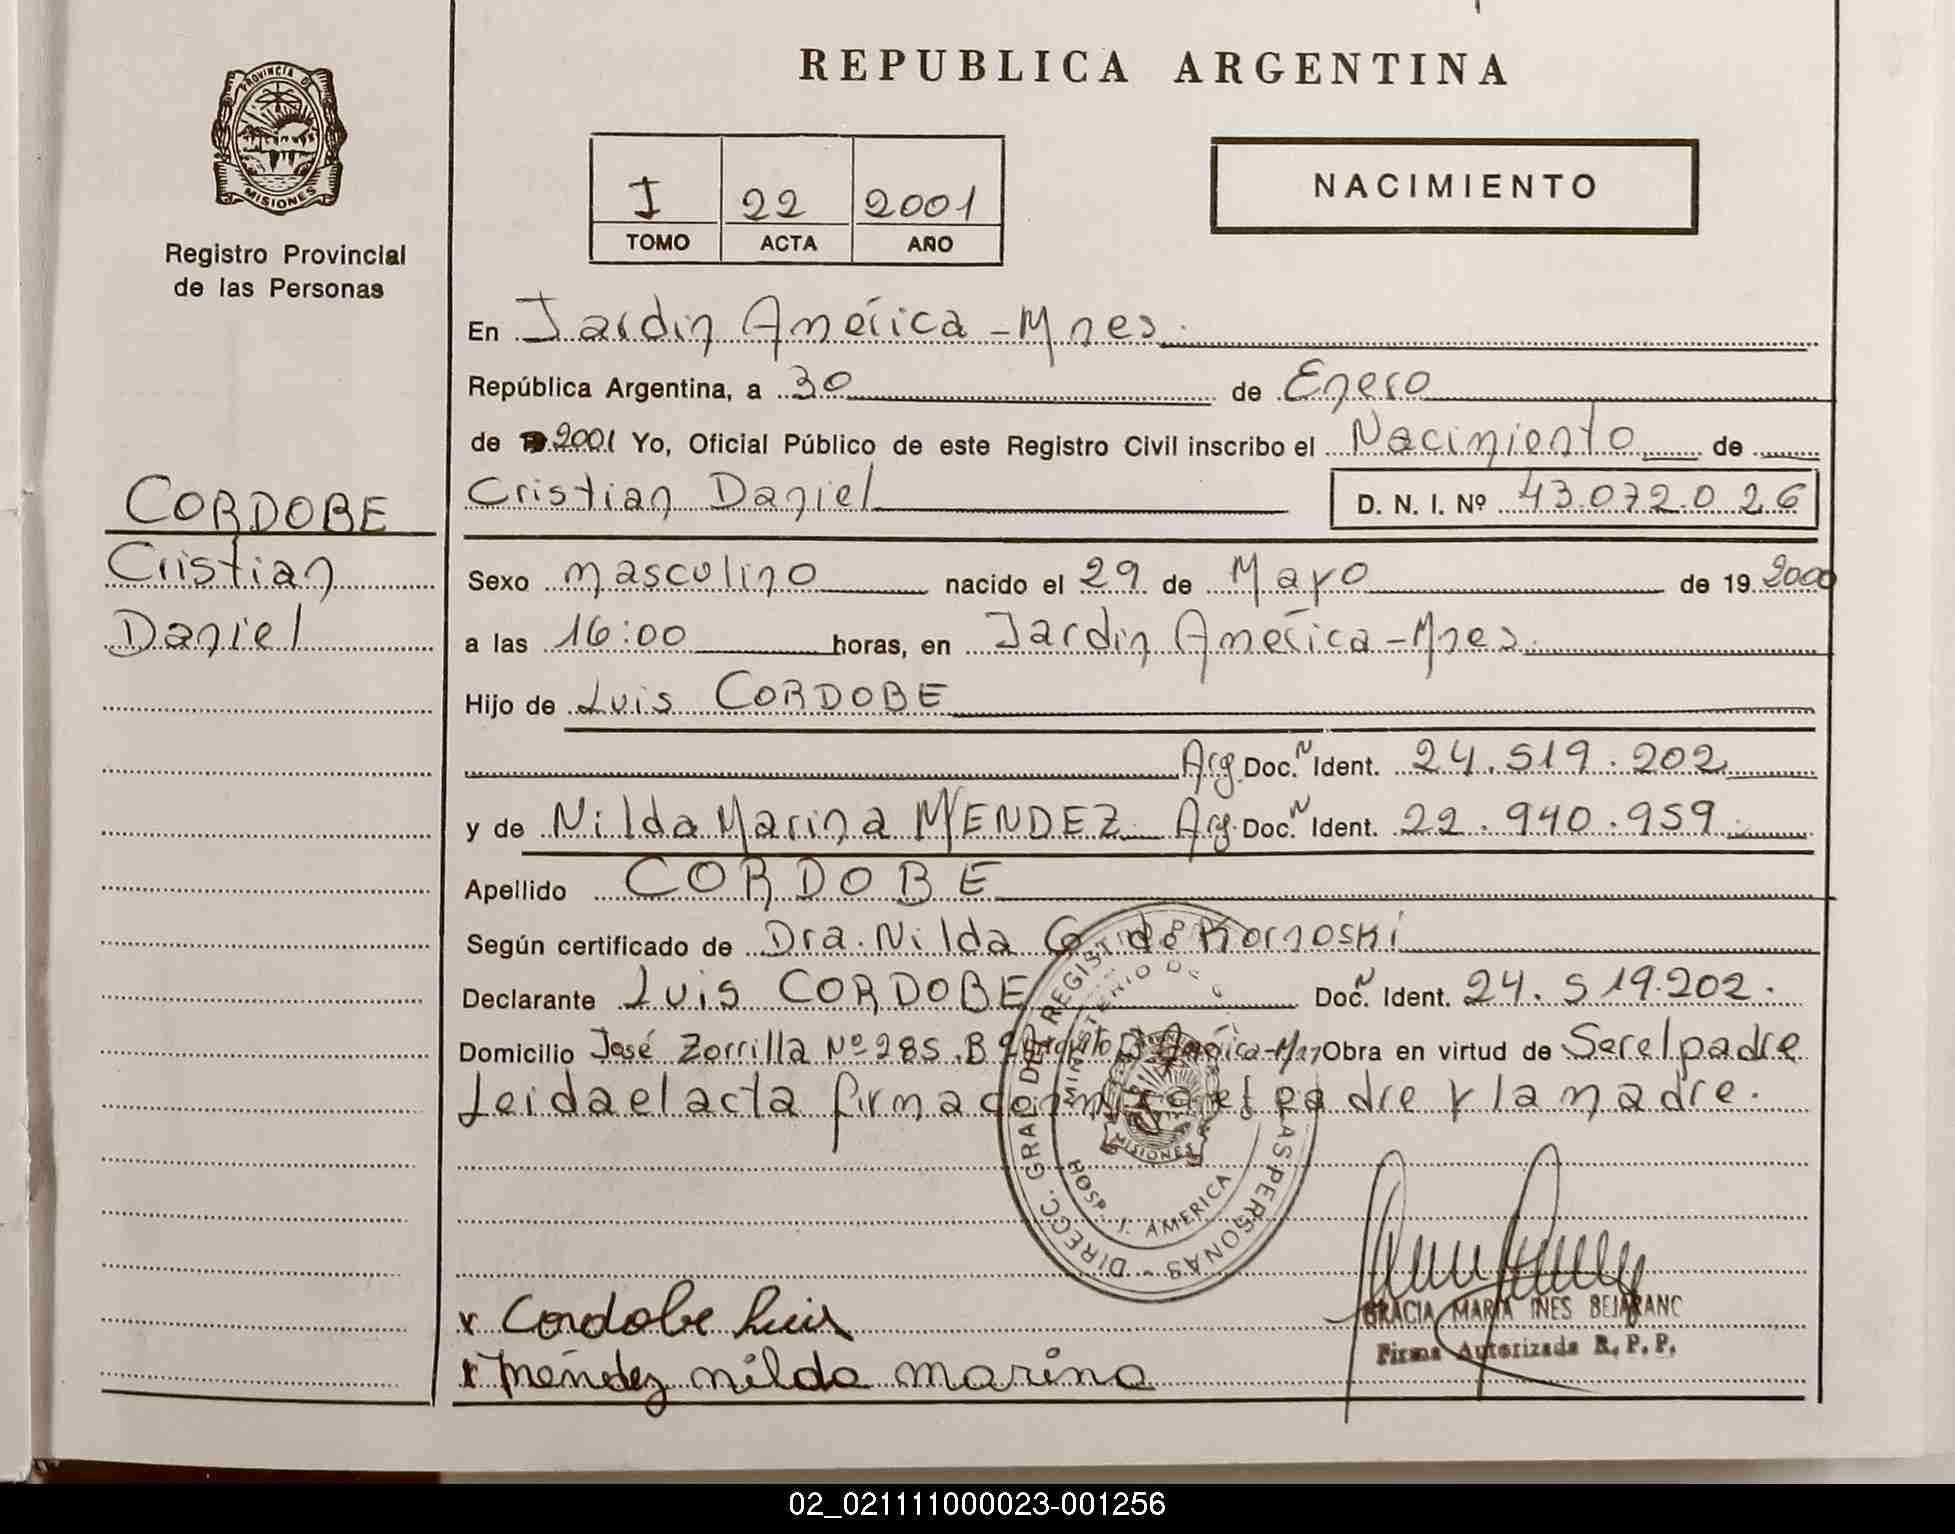 REPUBLICA ARGENTINA
PROVINCIA DE
MISIONES
Registro Provincial
de las Personas
I 22 2001
TOMO ACTA AÑO
NACIMIENTO
En Jardin América - Mnes.
República Argentina, a 30 de Enero
de 2001 Yo, Oficial Público de este Registro Civil inscribo el Nacimiento de
Cristian Daniel D. N. I. Nº 43.072.026
CORDOBE
Cristian
Daniel
Sexo masculino nacido el 29 de Mayo de 19 2000
a las 16:00 horas, en Jardin América - Mnes.
Hijo de Luis CORDOBE
Arg. Doc. Ident. 24.519.202
y de Nilda Marina MENDEZ Arg. Doc. Ident. 22.940.959
Apellido CORDOBE
Según certificado de Dra. Nilda G de Kornoski
Declarante Luis CORDOBE Doc. Ident. 24.519.202.
Domicilio José Zorrilla Nº 285. B Obra en virtud de Ser el padre
Leida el acta firma el padre y la madre.
DIRECC. GRAL DE REGISTRO LAS PERSONAS
MINISTERIO DE
MISIONES
HOSP. J. AMERICA
Cordobe Luis
Méndez nilda marina
GRACIA MARIA INES BEJARANO
Firma Autorizada R. P. P.
02_021111000023-001256